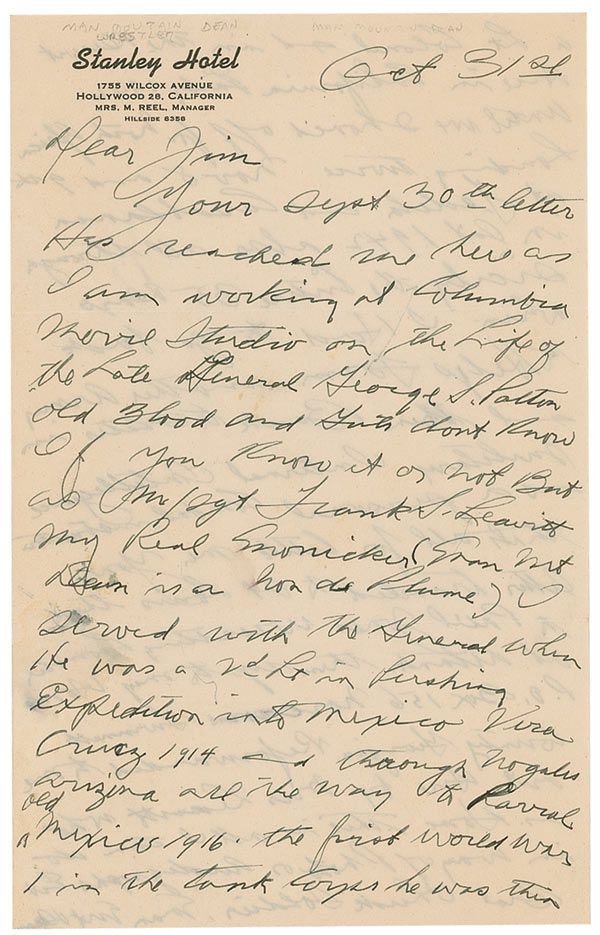 MAN MOUTAIN DEAN
WRESTLER
MAN MOUNTAIN DEAN
Stanley Hotel
1755 WILCOX AVENUE
HOLLYWOOD 28, CALIFORNIA
MRS. M. REEL, MANAGER
HILLSIDE 6356
Oct 31st
Dear Jim
Your Sept 30th letter
Has reached me here as
I am working at Columbia
Movie Studio on the Life of
the Late General George S. Patton
old Blood and Guts dont Know
If you Know it or not But
as M/sgt Frank S. Leavitt
My Real Monicker (Man Mt
Dean is a hon de Plume) I
served with the General when
He was a 2d Lt in Pershing
Expedition into Mexico Vera
Cruz 1914 and through Nogales
arizona all the way to Parral
old
Mexico 1916. the first World War
1 in the tank Corps he was then